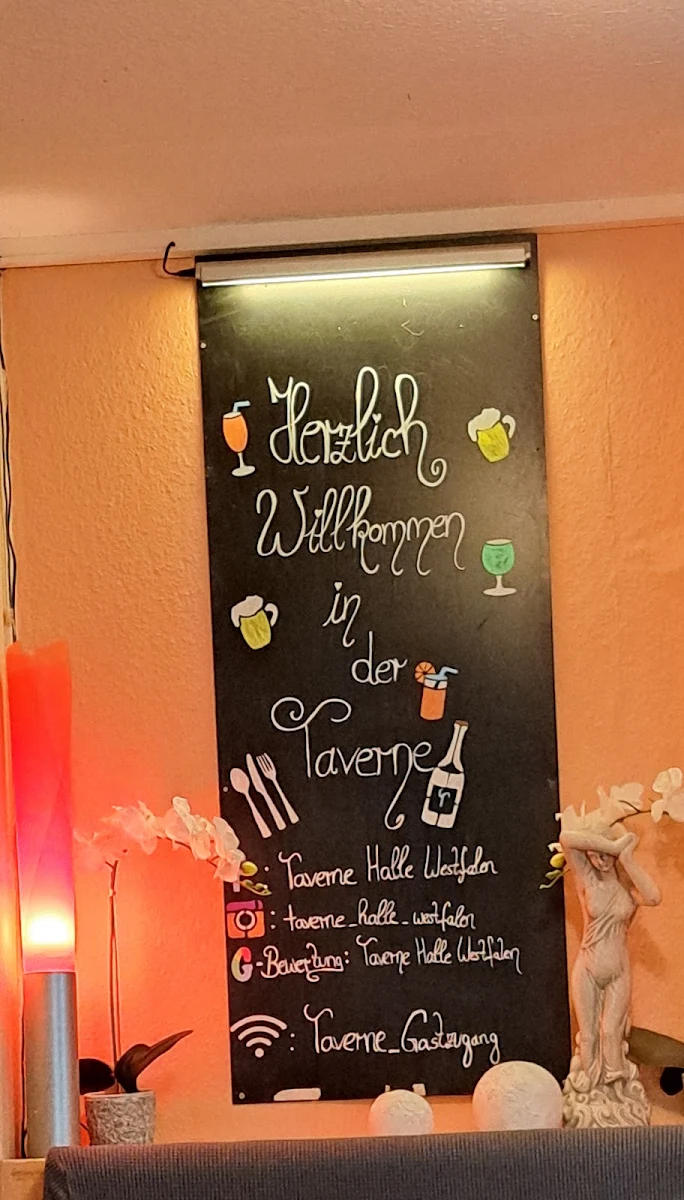 Herzlich
Willkommen
in
der
Taverne
: Taverne Halle Westfalen
: taverne_halle_westfalen
G-Bewertung: Taverne Halle Westfalen
: Taverne_Gastzugang